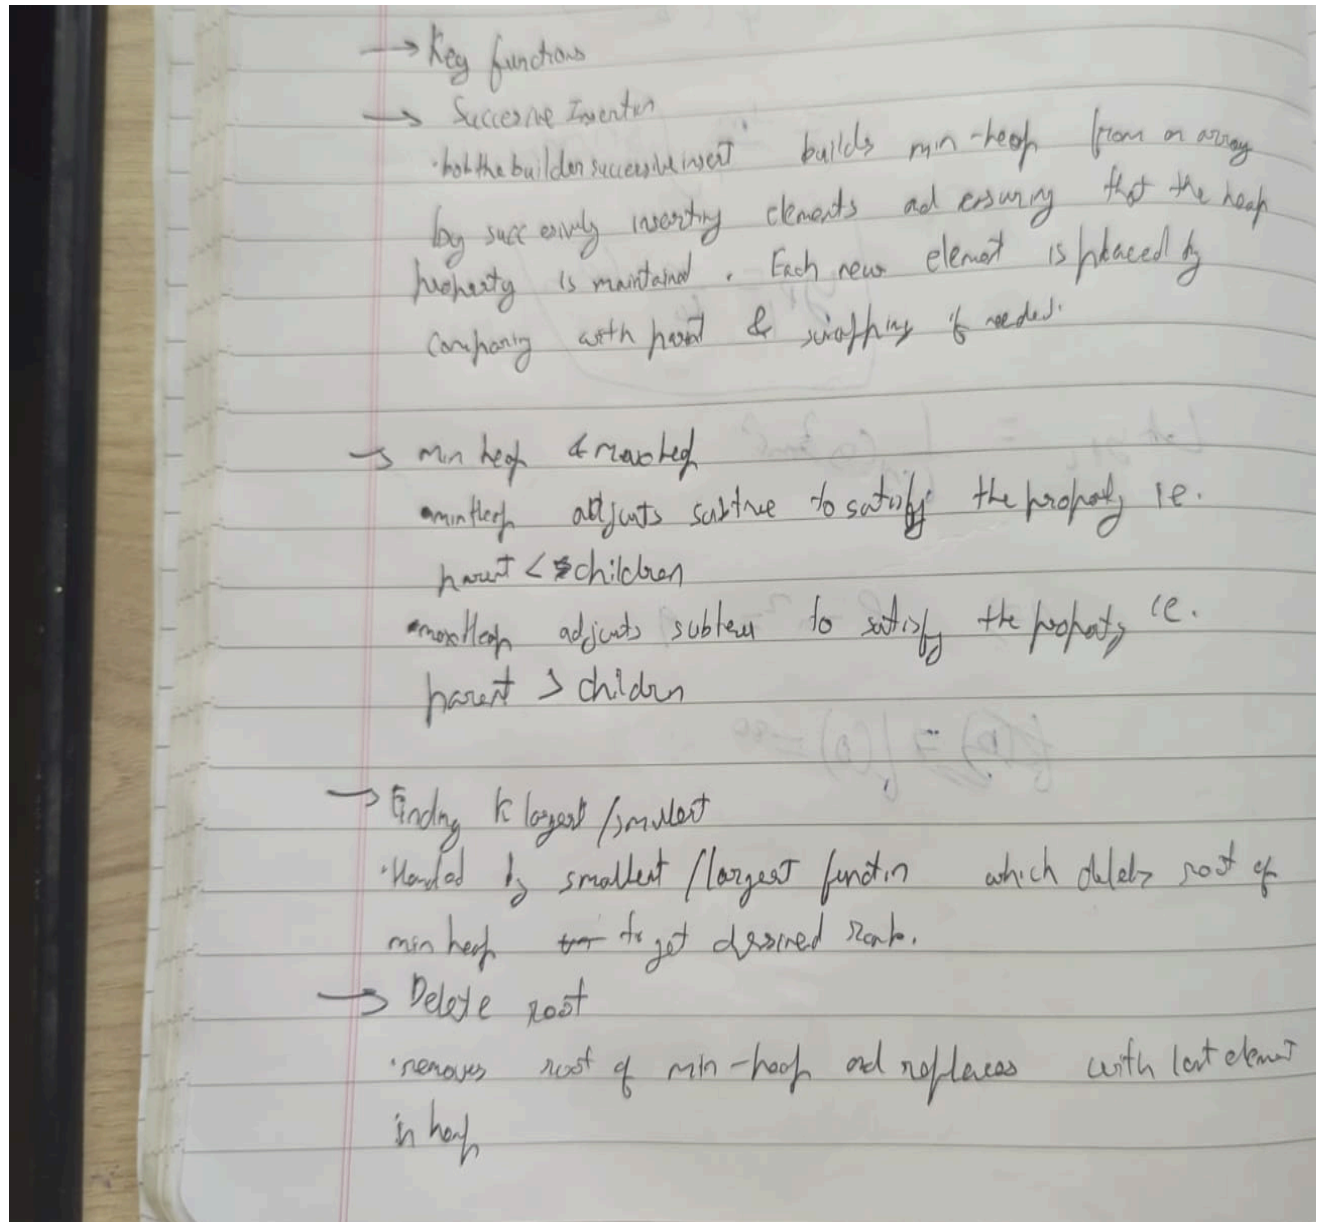 → Key functions
→ Successive Insertion
builds min-heap from an array
by successively inserting elements and ensuring that the heap
property is maintained. Each new element is placed by
comparing with parent & swapping if needed.
→ min heap & maxheap
•minHeap adjusts subtree to satisfy the property ie.
parent < children
•maxHeap adjusts subtree to satisfy the property ie.
parent > children
→ Finding K largest/smallest
•Handled by smallest/largest function which deletes root of
min heap to get desired rank.
→ Delete root
•removes root of min-heap and replaces with last element
in heap